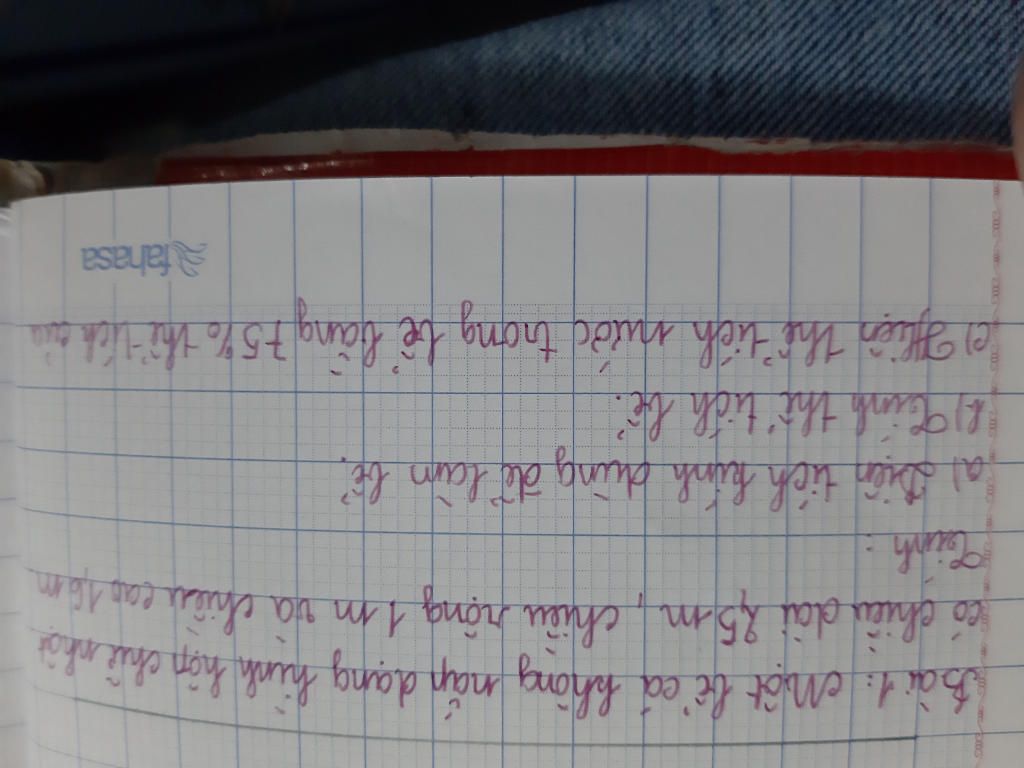 Bài 1: Một bể cá không nắp dạng hình hộp chữ nhật
có chiều dài 2,5m, chiều rộng 1m và chiều cao 1,6m
Tính:
a) Diện tích kính dùng để làm bể.
b) Tính thể tích bể.
c) Hiện thể tích nước trong bể bằng 75% thể tích của
fahasa